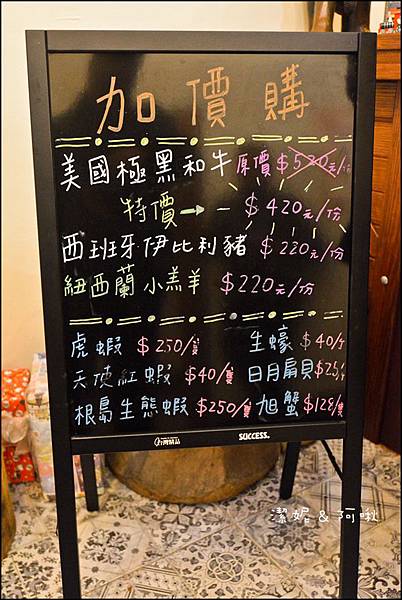 加價購
美國極黑和牛 原價$520元/份
特價→ $420元/份
西班牙伊比利豬 $220元/份
紐西蘭小羔羊 $220元/份
虎蝦 $250/隻 生蠔 $40/
天使紅蝦 $40/隻 日月扇貝 $25/
根島生態蝦 $250/隻 旭蟹 $128/隻
台灣精品 SUCCESS
潔妮&阿啾